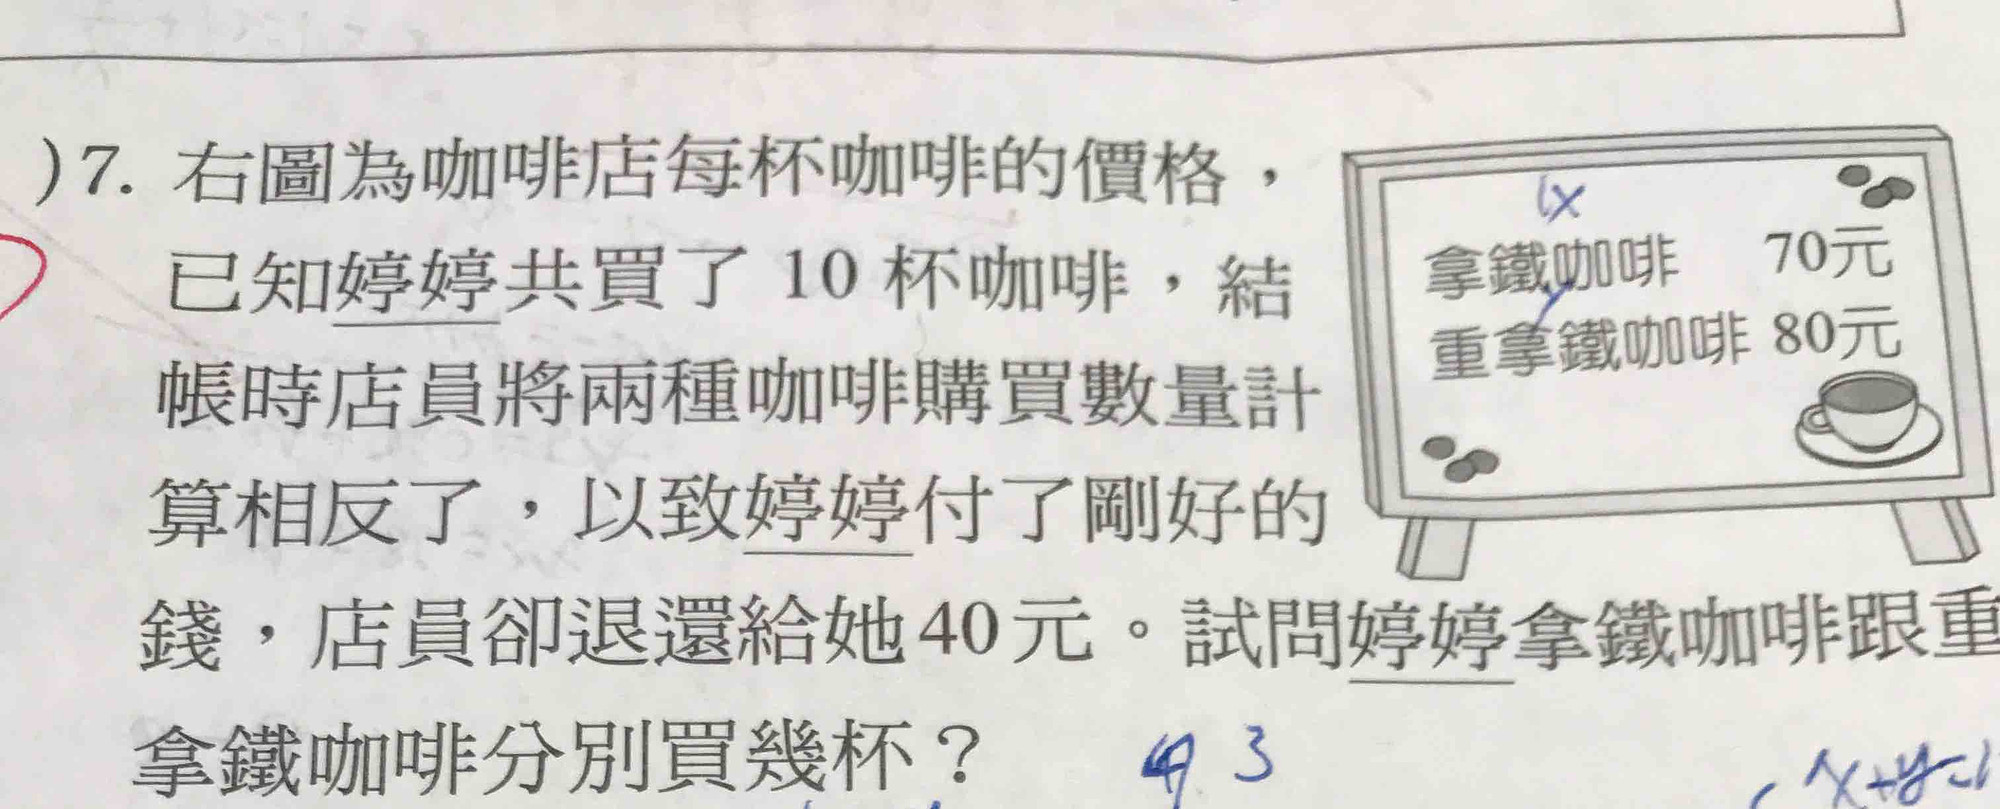 )7. 右圖為咖啡店每杯咖啡的價格，
已知婷婷共買了 10 杯咖啡，結
帳時店員將兩種咖啡購買數量計
算相反了，以致婷婷付了剛好的
錢，店員卻退還給她40元。試問婷婷拿鐵咖啡跟重
拿鐵咖啡分別買幾杯？
x
拿鐵咖啡 70元
y
重拿鐵咖啡 80元
3
x+y=1